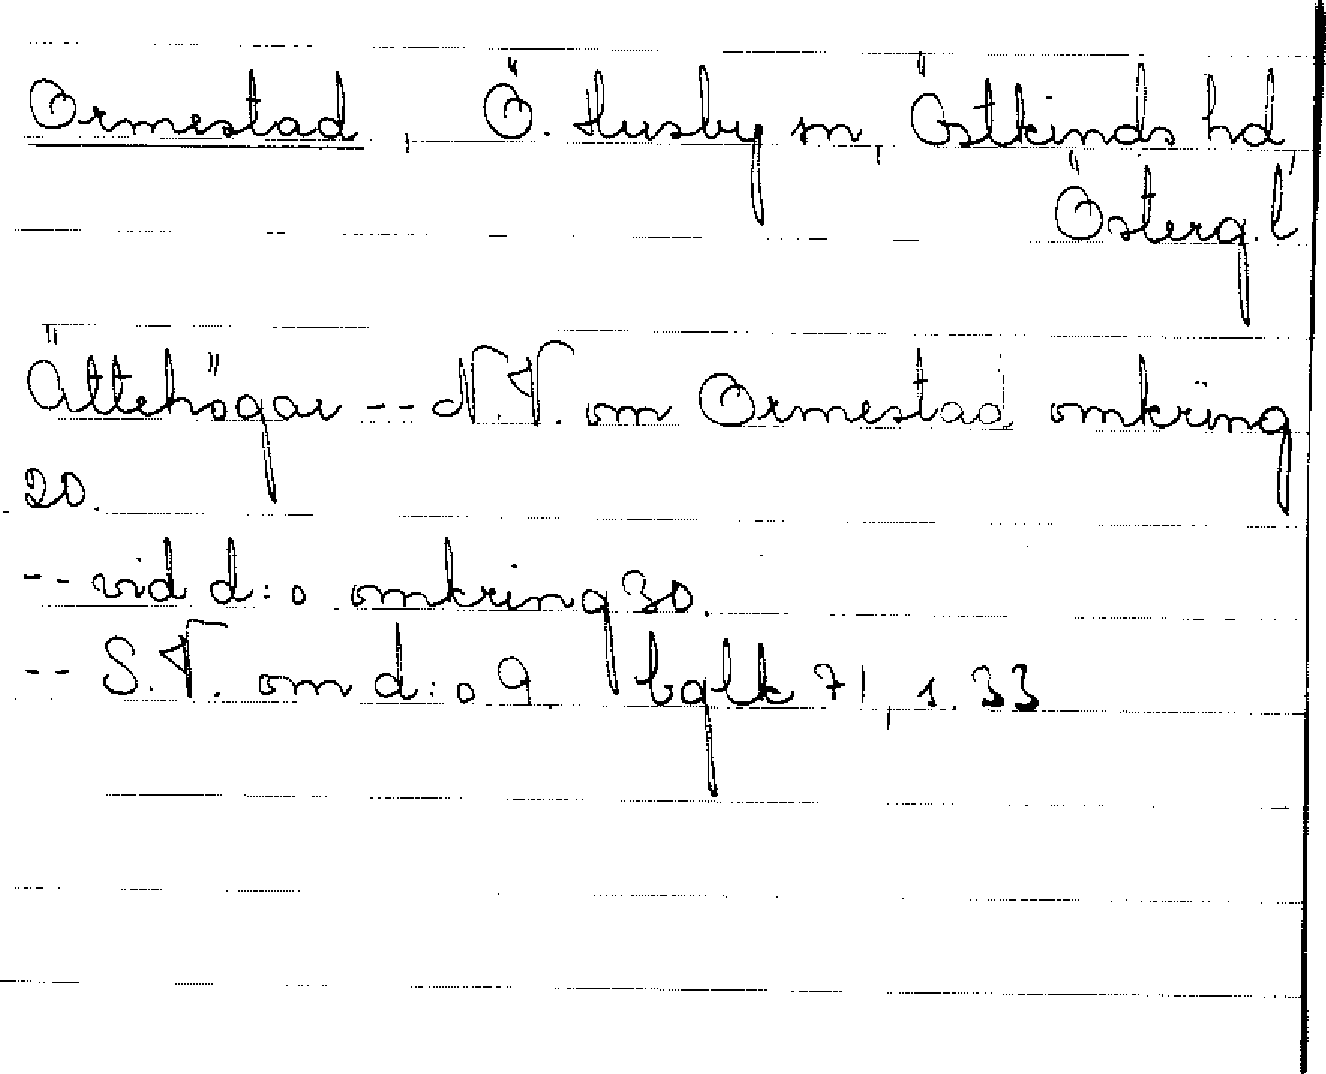 Ormestad, Ö. Husby sn, Östkinds hd,
Österg. l
Ättehögar -- N.V. om Ormestad omkring
20.
-- vid d:o omkring 30.
-- S.V. om d:o 9. bglk 71, 1. 33